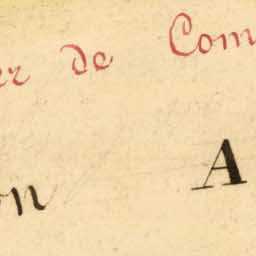 er de Com
on A